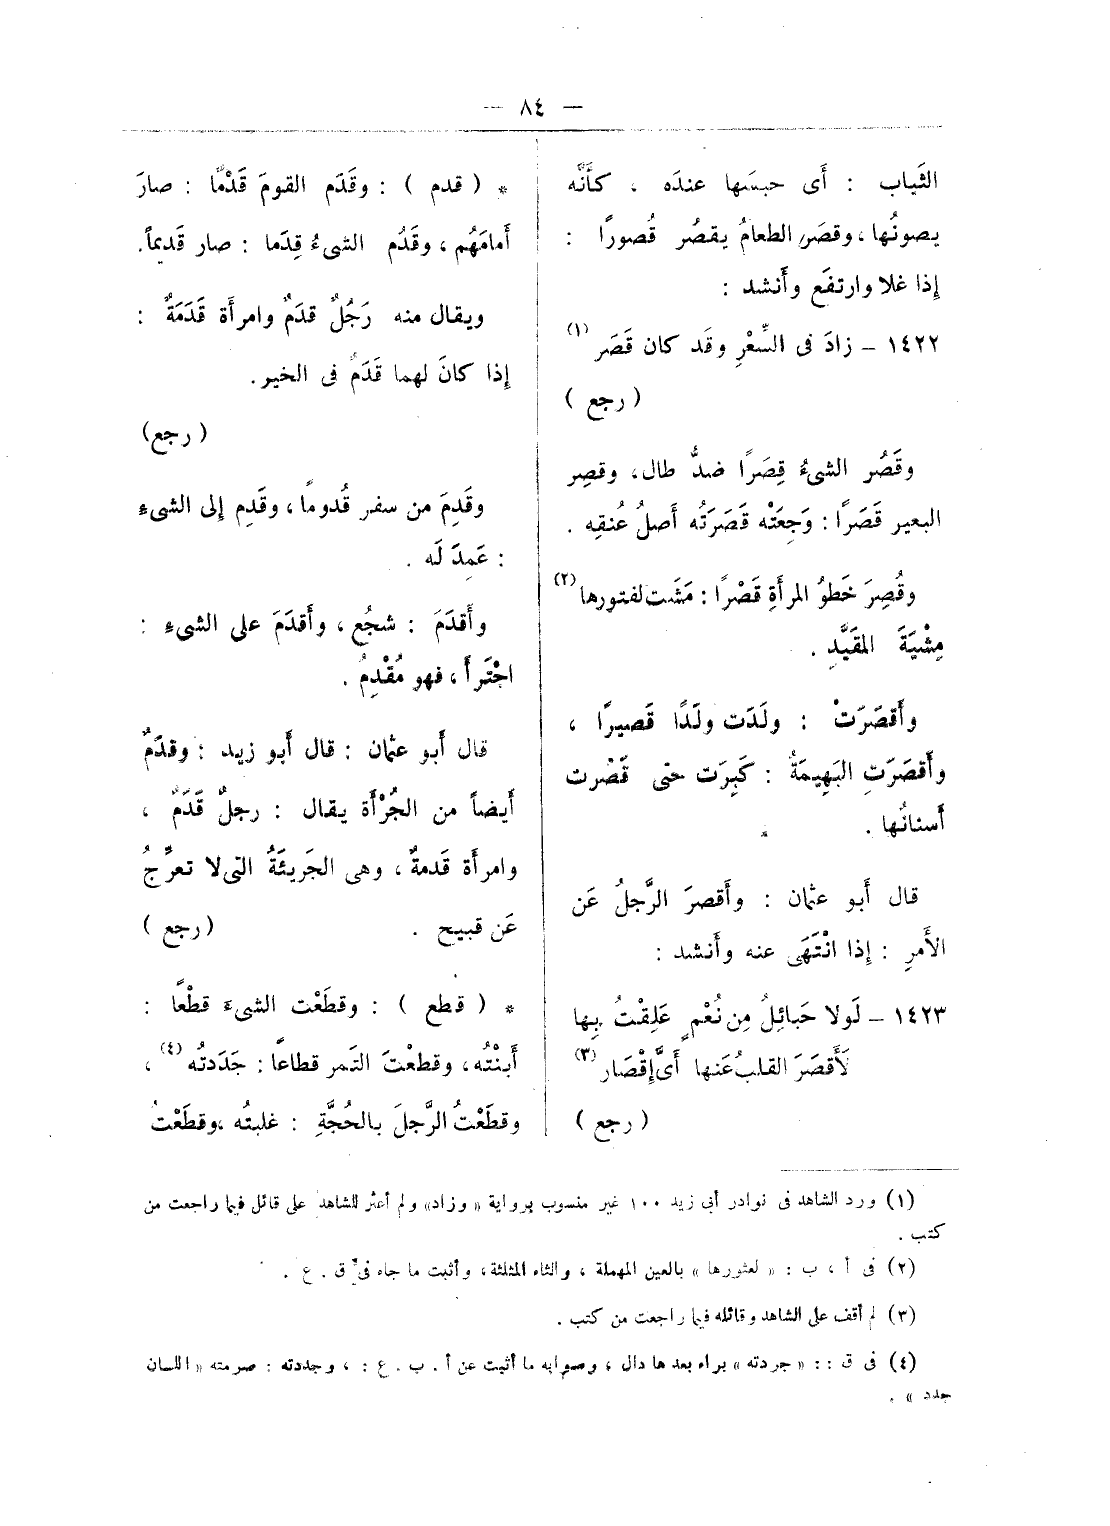 — ٨٤ —
الثَياب : أَى حبسَها عندَه ، كأَنَّه
يصونُها ، وقصَر الطعامُ يقصُر قُصورًا :
إذا غلا وارتفَع وأَنشد :
١٤٢٢ – زادَ فى السِّعْرِ وقَد كان قَصَر (١)
( رجع )
وقَصُر الشىءُ قِصَرًا ضدُّ طال، وقصِر
البعير قَصَرًا : وَجِعَتْه قَصَرَتُه أَصلُ عُنقِه .
وقُصِرَ خَطوُ المرأَةِ قَصْرًا : مَشَت لفتورها (٢)
مِشْيَةَ المقَيَّدِ .
وأَقصَرَتْ : ولَدَت ولَدًا قَصيرًا ،
وأَقصَرَتِ البَهِيمَةُ : كَبِرَت حتى قَصُرت
أَسنانُها .
قال أَبو عثمان : وأَقصرَ الرَّجلُ عَن
الأَمرِ : إذا انْتَهَى عنه وأَنشد :
١٤٢٣ – لَولا حَبائِلُ مِن نُعْمٍ عَلِقْتُ بِها
لَأَقصَرَ القلبُ عَنها أَىَّ إقْصَار (٣)
( رجع )
* ( قدم ) : وقَدَم القومَ قَدْمًا : صارَ
أَمامَهُم ، وقَدُم الشىءُ قِدَما : صار قَديماً.
ويقال منه رَجُلٌ قدَمٌ وامرأَة قَدَمَةٌ :
إذا كانَ لهما قَدَمٌ فى الخير.
( رجع)
وقَدِمَ من سفر قُدوماً ، وقَدِم إلى الشىءِ
: عَمِدَ لَه .
وأَقدَمَ : شجُع ، وأَقدَمَ على الشىءِ :
اجْتَرأَ ، فهو مُقْدِمٌ .
قال أَبو عثمان : قال أَبو زيد : وقدَمٌ
أَيضاً من الجُرْأَة يقال : رجلٌ قَدَمٌ ،
وامرأَة قَدمةٌ ، وهى الجَريئَةُ التى لا تعرَّجُ
عَن قبيح . ( رجع )
* ( قطع ) : وقطَعْت الشىءَ قطْعًا :
أَبنْتُه ، وقطعْتَ التَمر قطاعًا : جَدَدتُه (٤) ،
وقطَعْتُ الرَّجلَ بالحُجَّةِ : غلبتُه ، وقطَعْتُ
(١) ورد الشاهد فى نوادر أبى زيد ١٠٠ غير منسوب برواية « وزاد» ولم أعثر للشاهد على قائل فيما راجعت من
كتب .
(٢) فى أ ، ب : « لعثورها » بالعين المهملة ، والثاء المثلثة، وأثبت ما جاه فى ق . ع .
(٣) لم أقف على الشاهد وقائله فيما راجعت من كتب .
(٤) فى ق : : « جردته » براء بعد ها دال ، وصوابه ما أثبت عن أ . ب . ع : ، وجددته : صرمته « اللسان
جدد » .